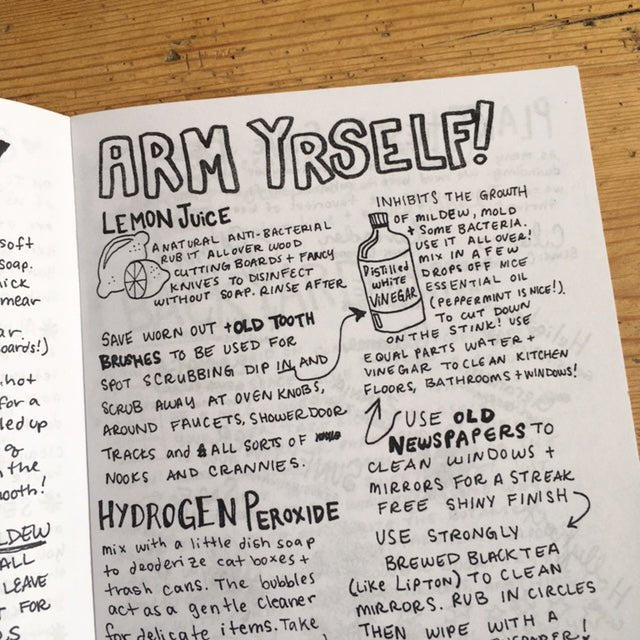 soft
soap.
ar
oards!)
hot
for a
led up
g
the
ooth!
LDEW
ALL
LEAVE
FOR
ARM YRSELF!
LEMON JUICE
A NATURAL ANTI-BACTERIAL
RUB IT ALL OVER WOOD
CUTTING BOARDS + FANCY
KNIVES TO DISINFECT
WITHOUT SOAP. RINSE AFTER
SAVE WORN OUT + OLD TOOTH
BRUSHES TO BE USED FOR
SPOT SCRUBBING DIP IN AND
SCRUB AWAY AT OVEN KNOBS,
AROUND FAUCETS, SHOWER DOOR
TRACKS AND ALL SORTS OF
NOOKS AND CRANNIES.
HYDROGEN PEROXIDE
mix with a little dish soap
to deoderize cat boxes +
trash cans. The bubbles
act as a gentle cleaner
for delicate items. Take
INHIBITS THE GROWTH
OF MILDEW, MOLD
+ SOME BACTERIA.
USE IT ALL OVER!
MIX IN A FEW
DROPS OFF NICE
ESSENTIAL OIL
(PEPPERMINT IS NICE!)
TO CUT DOWN
ON THE STINK! USE
EQUAL PARTS WATER +
VINEGAR TO CLEAN KITCHEN
FLOORS, BATHROOMS + WINDOWS!
Distilled
white
VINEGAR
USE OLD
NEWSPAPERS TO
CLEAN WINDOWS +
MIRRORS FOR A STREAK
FREE SHINY FINISH
USE STRONGLY
BREWED BLACK TEA
(LIKE LIPTON) TO CLEAN
MIRRORS. RUB IN CIRCLES
THEN WIPE WITH A